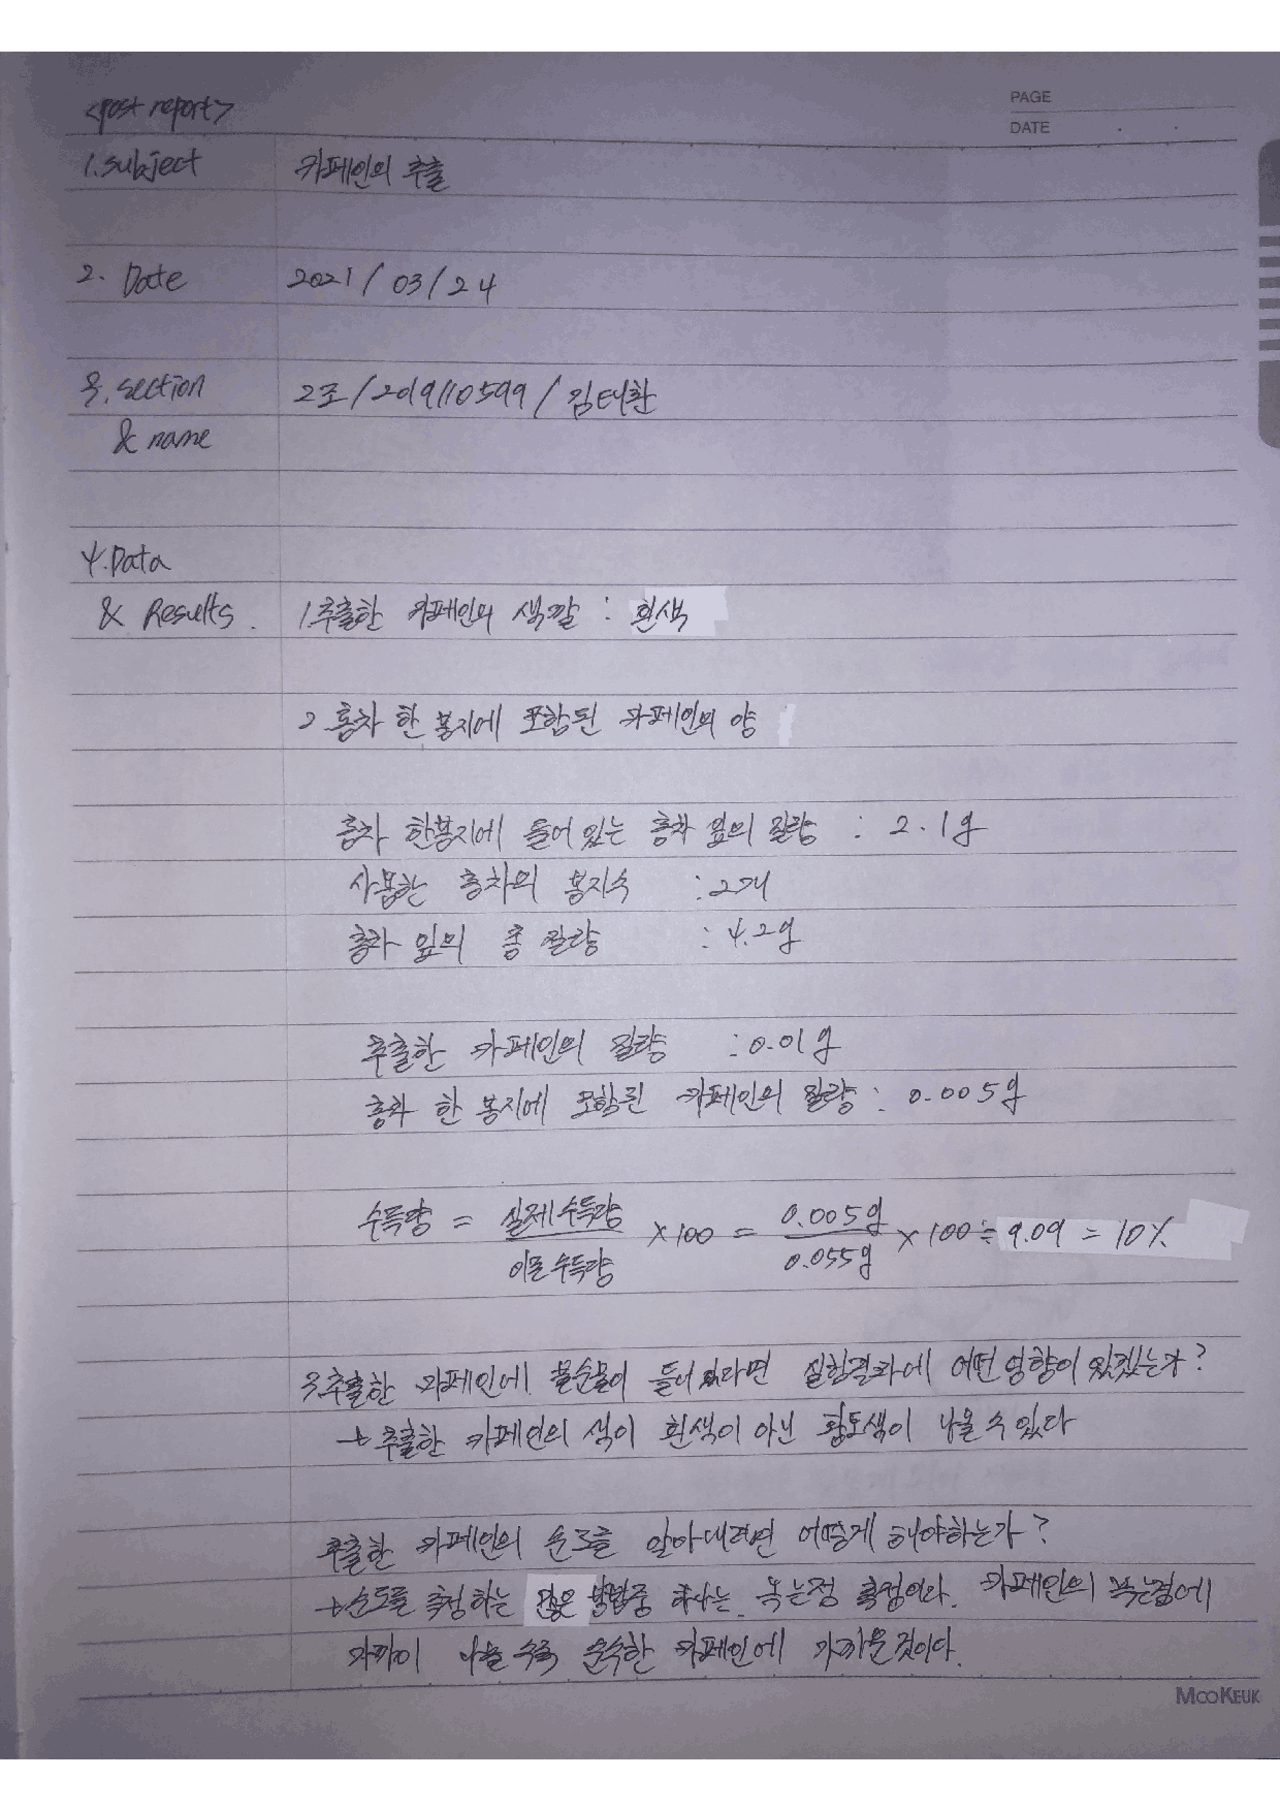 <post report>
PAGE
DATE
1. subject 카페인의 추출
2. Date 2021 / 03 / 24
3. section 2조 / 2019110599 / 김태환
& name
4. Data
& Results. 1. 추출한 카페인의 색깔 : 흰색
2. 홍차 한 봉지에 포함된 카페인의 양
홍차 한봉지에 들어 있는 홍차 잎의 질량 : 2.1g
사용한 홍차의 봉지수 : 2개
홍차 잎의 총 질량 : 4.2g
추출한 카페인의 질량 : 0.01g
홍차 한 봉지에 포함된 카페인의 질량 : 0.005g
수득량 = 실제 수득량 / 이론 수득량 × 100 = 0.005g / 0.055g × 100 ≒ 9.09 = 10%
3. 추출한 카페인에 불순물이 들어있다면 실험결과에 어떤 영향이 있겠는가?
→ 추출한 카페인의 색이 흰색이 아닌 황토색이 나올 수 있다
추출한 카페인의 순도를 알아내려면 어떻게 해야하는가?
→ 순도를 측정하는 많은 방법중 하나는 녹는점 측정이다. 카페인의 녹는점에
가까이 나올 수록 순수한 카페인에 가까운것이다.
MOOKEUK